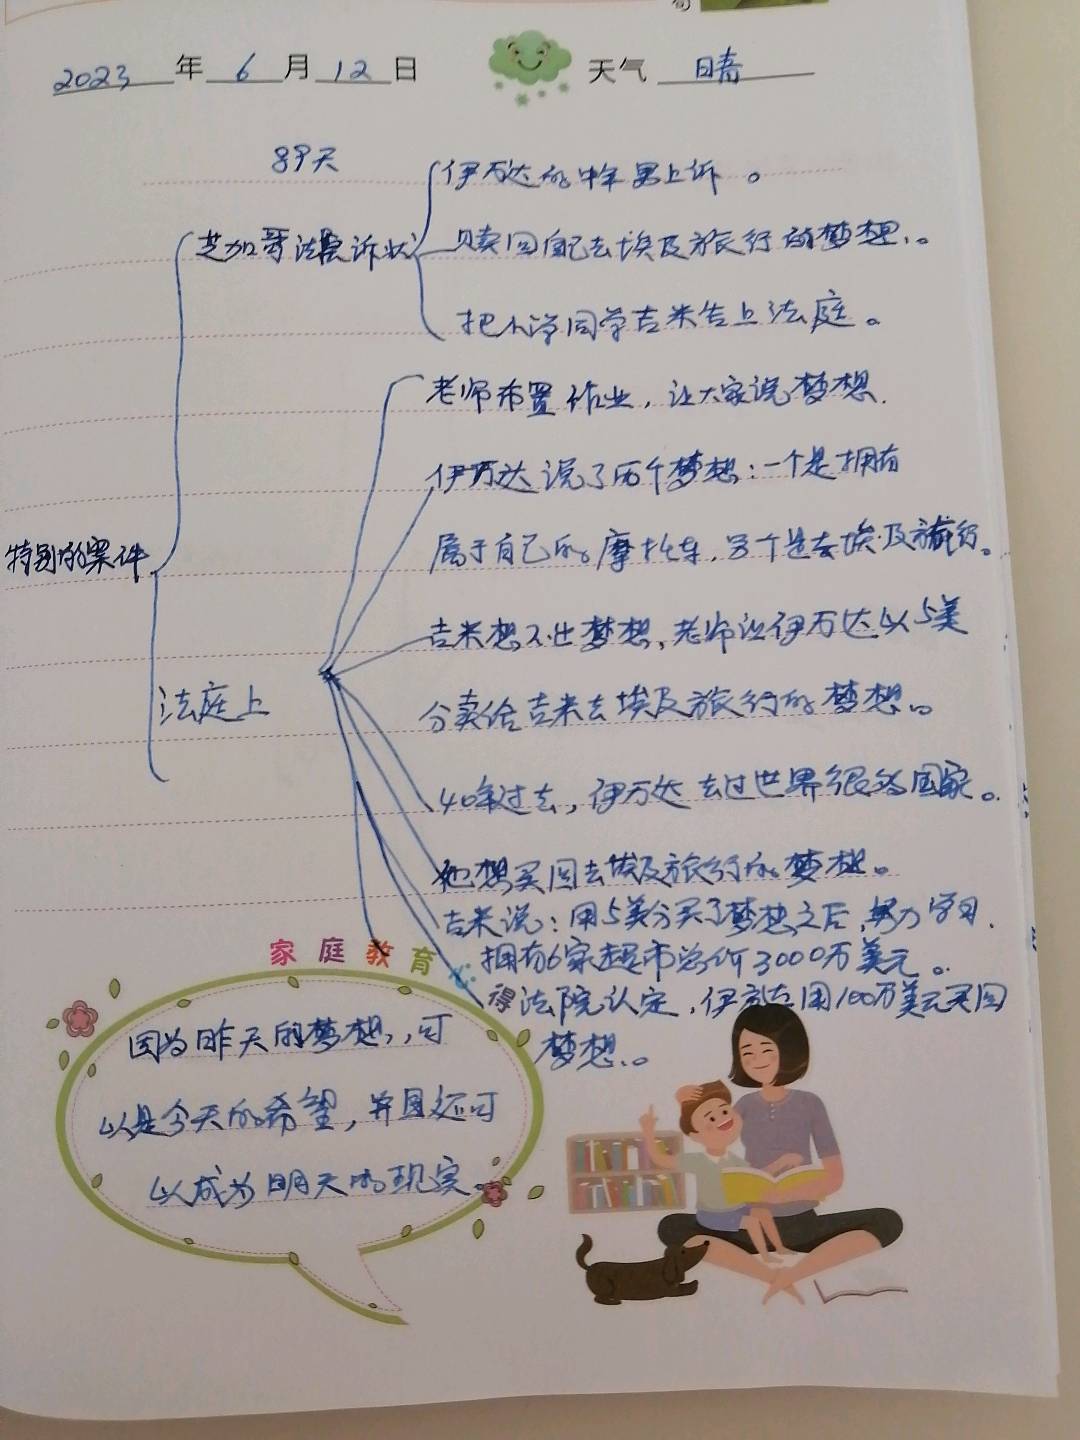 2023年6月12日 天气 晴
89天
伊万达的中年男上诉。
芝加哥法院诉状
赎回自己去埃及旅行的梦想。
把小学同学吉米告上法庭。
老师布置作业，让大家说梦想.
伊万达说了两个梦想:一个是拥有
属于自己的摩托车，另个是去埃及旅行。
特别的案件
吉米想不出梦想，老师让伊万达以5美
法庭上
分卖给吉米去埃及旅行的梦想。
40年过去，伊万达去过世界很多国家。
他想买回去埃及旅行的梦想。
吉米说:用5美分买了梦想之后,努力学习.
拥有6家超市总价3000万美元。
家庭教育
得法院认定，伊万达用100万美元买回
梦想。
因为昨天的梦想,可
以是今天的希望，并且还可
以成为明天的现实。